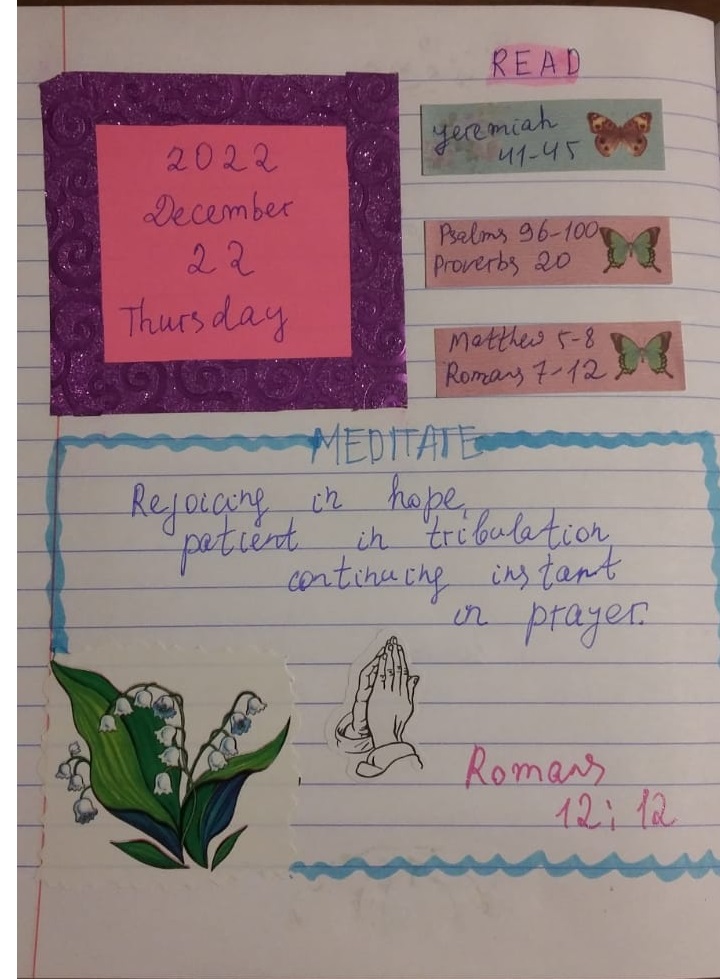 2022
December
22
Thursday
READ
Jeremiah
41-45
Psalms 96-100
Proverbs 20
Matthew 5-8
Romans 7-12
MEDITATE
Rejoicing in hope,
patient in tribulation
continuing instant
in prayer.
Romans
12:12